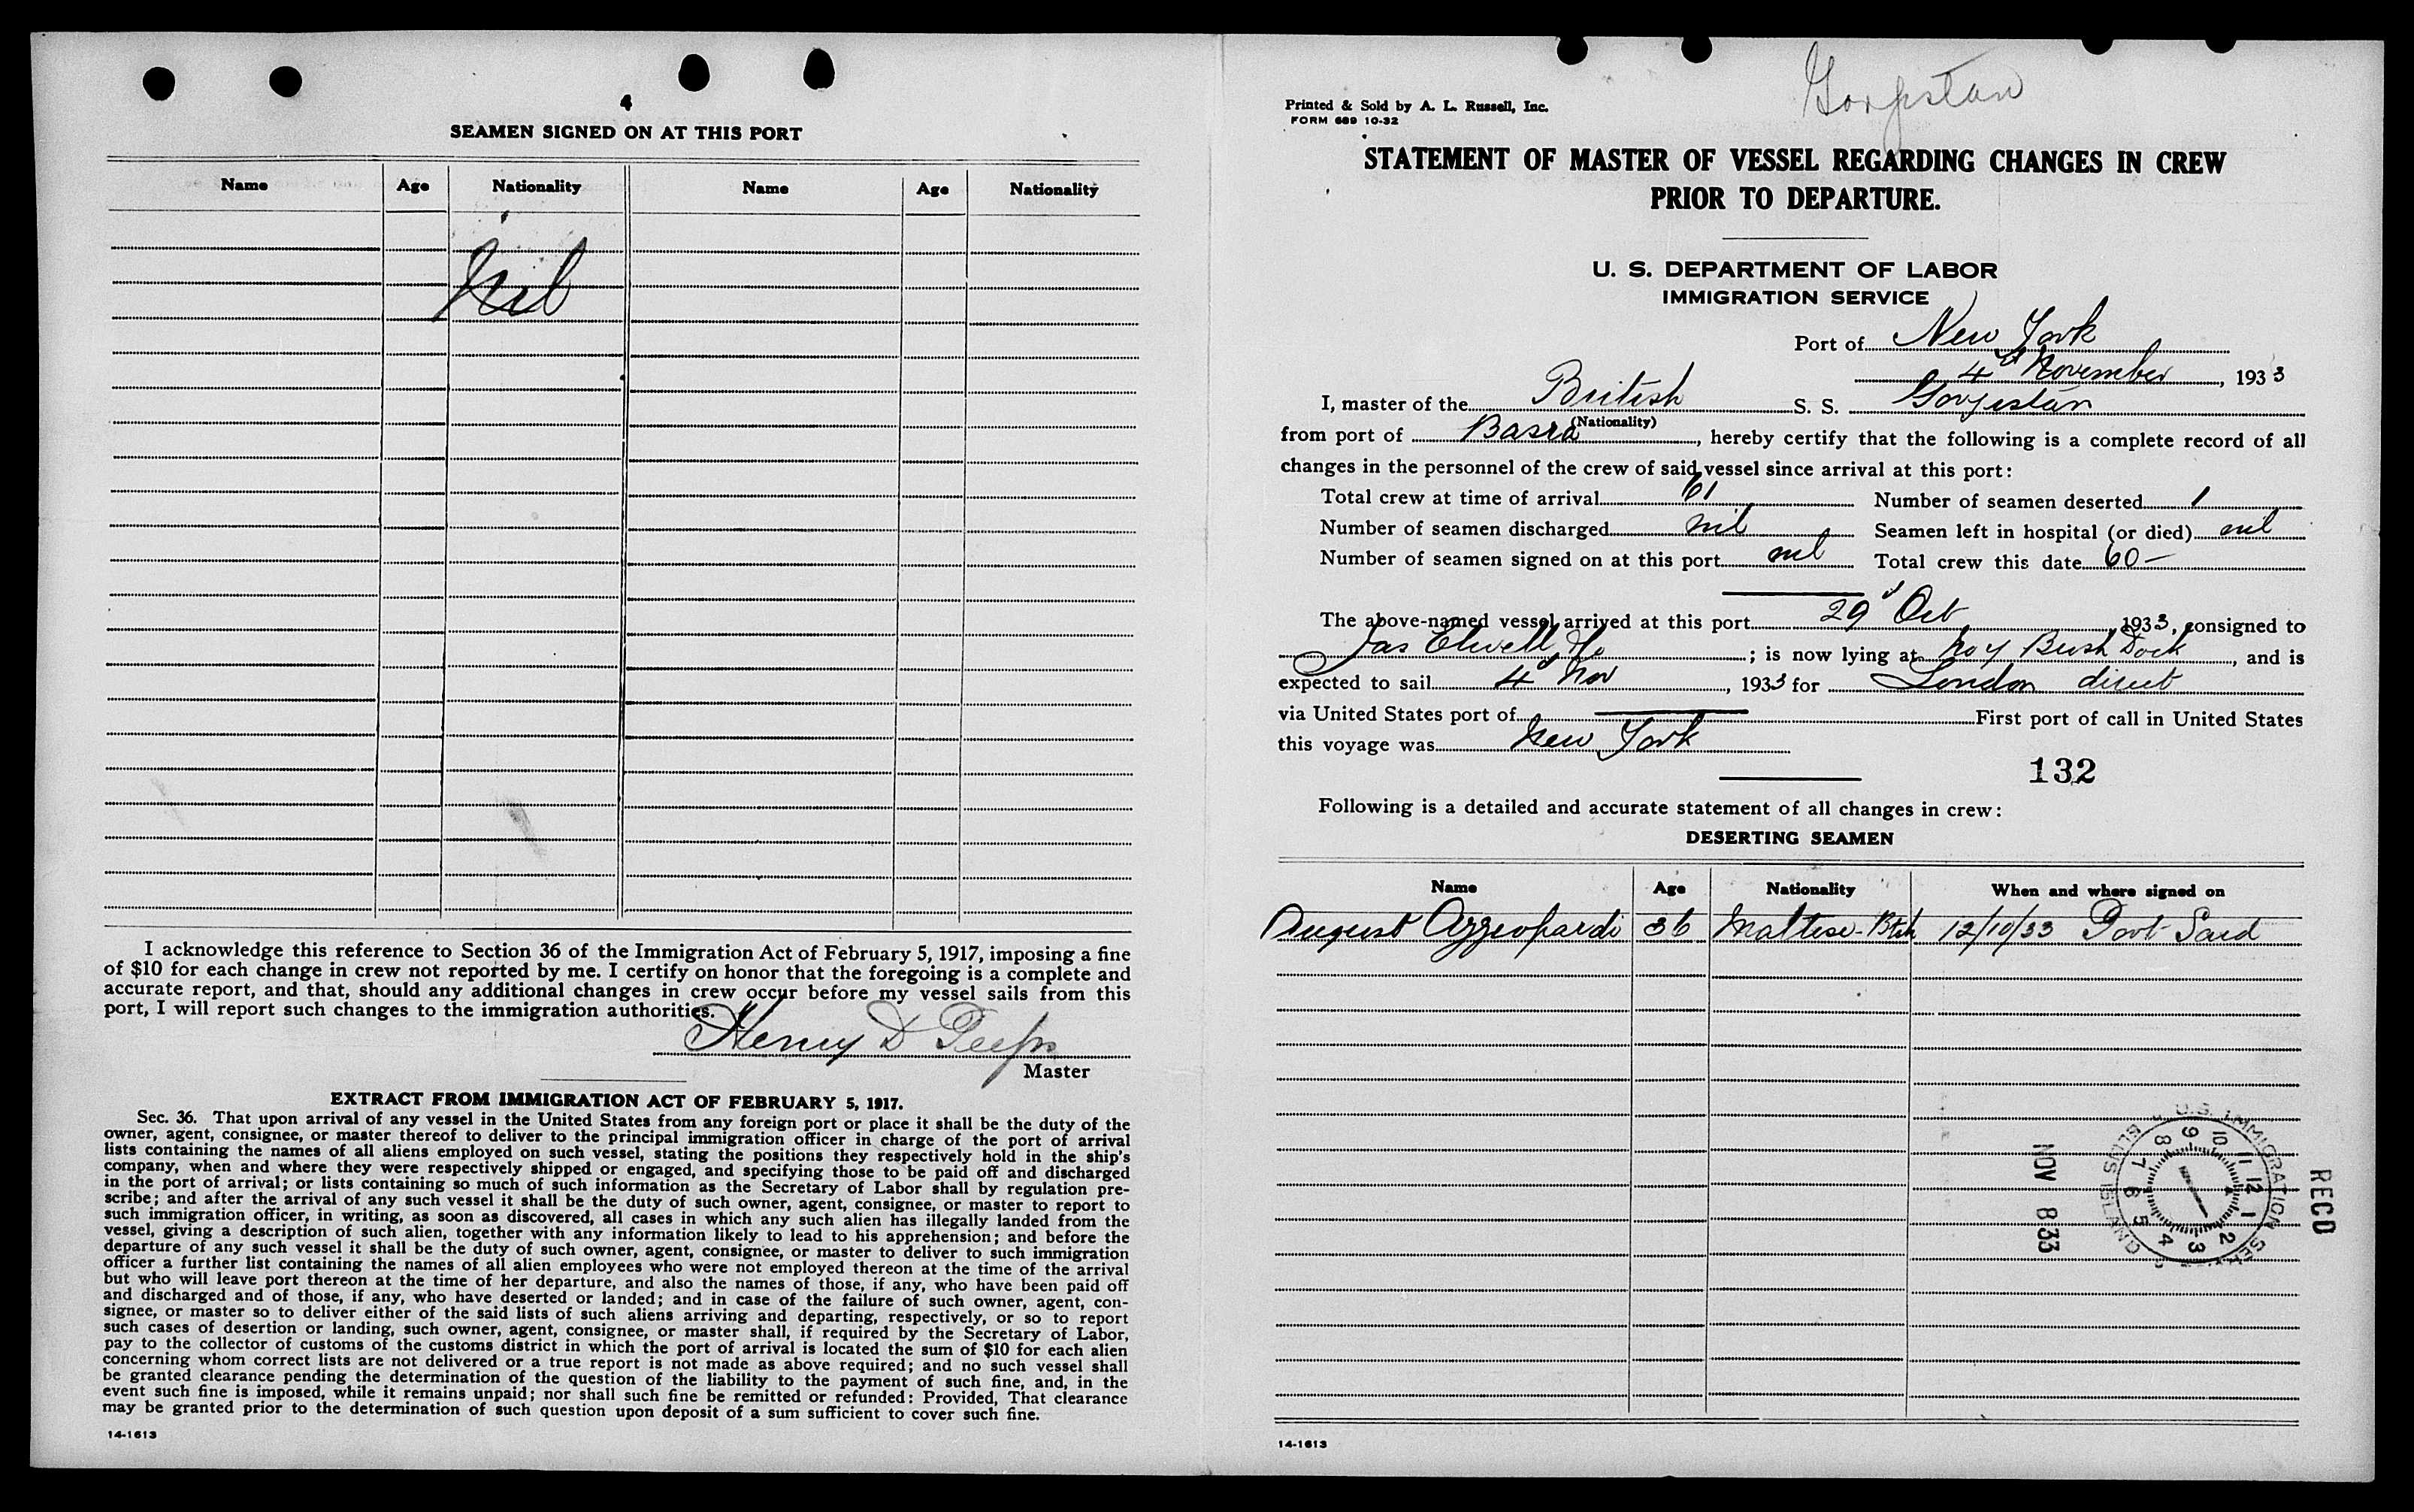 4
SEAMEN SIGNED ON AT THIS PORT
Name Age Nationality Name Age Nationality
Nil
I acknowledge this reference to Section 36 of the Immigration Act of February 5, 1917, imposing a fine
of $10 for each change in crew not reported by me. I certify on honor that the foregoing is a complete and
accurate report, and that, should any additional changes in crew occur before my vessel sails from this
port, I will report such changes to the immigration authorities.
Henry D Peeps
Master
EXTRACT FROM IMMIGRATION ACT OF FEBRUARY 5, 1917.
Sec. 36. That upon arrival of any vessel in the United States from any foreign port or place it shall be the duty of the
owner, agent, consignee, or master thereof to deliver to the principal immigration officer in charge of the port of arrival
lists containing the names of all aliens employed on such vessel, stating the positions they respectively hold in the ship's
company, when and where they were respectively shipped or engaged, and specifying those to be paid off and discharged
in the port of arrival; or lists containing so much of such information as the Secretary of Labor shall by regulation pre-
scribe; and after the arrival of any such vessel it shall be the duty of such owner, agent, consignee, or master to report to
such immigration officer, in writing, as soon as discovered, all cases in which any such alien has illegally landed from the
vessel, giving a description of such alien, together with any information likely to lead to his apprehension; and before the
departure of any such vessel it shall be the duty of such owner, agent, consignee, or master to deliver to such immigration
officer a further list containing the names of all alien employees who were not employed thereon at the time of the arrival
but who will leave port thereon at the time of her departure, and also the names of those, if any, who have been paid off
and discharged and of those, if any, who have deserted or landed; and in case of the failure of such owner, agent, con-
signee, or master so to deliver either of the said lists of such aliens arriving and departing, respectively, or so to report
such cases of desertion or landing, such owner, agent, consignee, or master shall, if required by the Secretary of Labor,
pay to the collector of customs of the customs district in which the port of arrival is located the sum of $10 for each alien
concerning whom correct lists are not delivered or a true report is not made as above required; and no such vessel shall
be granted clearance pending the determination of the question of the liability to the payment of such fine, and, in the
event such fine is imposed, while it remains unpaid; nor shall such fine be remitted or refunded: Provided, That clearance
may be granted prior to the determination of such question upon deposit of a sum sufficient to cover such fine.
14-1613
Gorjistan
Printed & Sold by A. L. Russell, Inc.
FORM 689 10-32
STATEMENT OF MASTER OF VESSEL REGARDING CHANGES IN CREW
PRIOR TO DEPARTURE.
U. S. DEPARTMENT OF LABOR
IMMIGRATION SERVICE
Port of New York
4th November, 1933
I, master of the British S. S. Gorjistan
(Nationality)
from port of Basra, hereby certify that the following is a complete record of all
changes in the personnel of the crew of said vessel since arrival at this port:
Total crew at time of arrival 61 Number of seamen deserted 1
Number of seamen discharged nil Seamen left in hospital (or died) nil
Number of seamen signed on at this port nil Total crew this date 60 -
The above-named vessel arrived at this port 29 Oct 1933, consigned to
Jas Elwell Co; is now lying at No 4 Bush Dock, and is
expected to sail 4 Nov, 1933 for London direct
via United States port of First port of call in United States
this voyage was New York
132
Following is a detailed and accurate statement of all changes in crew:
DESERTING SEAMEN
Name Age Nationality When and where signed on
August Azzeopardi 36 Maltese-Btsh 12/10/33 Port Said
RECD
U.S. IMMIGRATION SERVICE
ELLIS ISLAND
1 2 3 4 5 6 7 8 9 10 11 12
NOV 8 33
14-1613